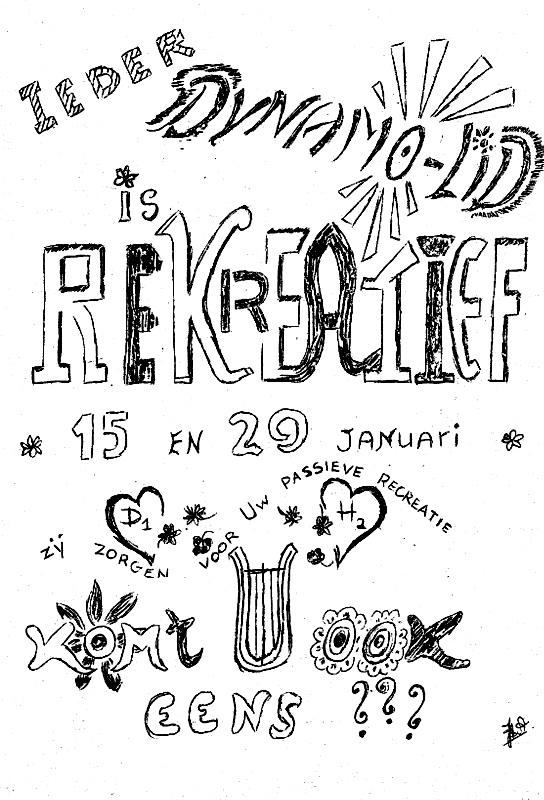 IEDER
DYNAMO-LiD
iS
REKREATIEF
15 EN 29 JANUARi
D1 H2
ZIJ ZORGEN VOOR UW PASSIEVE RECREATIE
KOMt U OOK
EENS ???